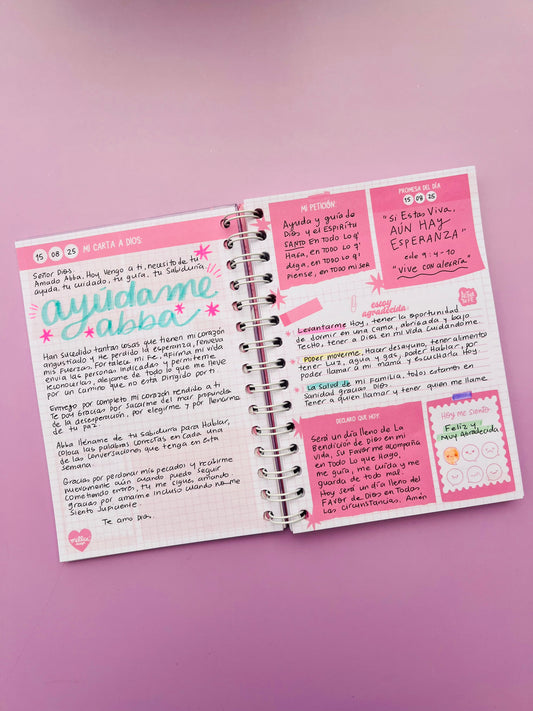 15 08 25 MI CARTA A DIOS:
Señor Dios:
Amado Abba, Hoy Vengo a ti, necesito de tu
ayuda, tu cuidado, tu guía, tu Sabiduría
ayúdame
abba
Han sucedido tantas cosas que tienen mi corazón
angustiado y He perdido la esperanza, renueva
mis Fuerzas. Fortalece mi Fe, afirma mi vida
envia las personas indicadas y permiteme
reconocerlas, alejame de todo lo que me lleve
por un camino que no esta Dirigido por ti.
Entrego por completo mi corazón rendido a ti
Te Doy Gracias por Sacarme del mar profundo
de la desesperación, por elegirme y por llenarme
de tu paz
Abba lléname de tu sabiduría para Hablar,
coloca las palabras correctas en cada una
de las conversaciones que tenga en esta
semana.
Gracias por perdonar mis pecados y recibirme
nuevamente aún cuando puedo seguir
Cometiendo errores, tu me sigues amando.
gracias por amarme incluso cuando no me
Siento suficiente.
Te amo Dios.
MI PETICIÓN:
Ayuda y guía de
Dios y el ESPÍRITU
SANTO en Todo lo q'
Haga, en Todo lo q'
diga, en Todo lo q'
piense, en TODO mi SER
PROMESA DEL DÍA
15 08 25
"Si Estas Viva,
AÚN HAY
ESPERANZA"
ecle 9:4-10
"VIVE CON ALEGRÍA"
estoy
agradecida
Levantarme Hoy, tener la oportunidad
de dormir en una cama, abrigada y bajo
Techo, tener a DIOS en mi vida cuidándome
Poder moverme. Hacer desayuno, tener alimento
tener Luz, agua y gas, poder Hablar, por
poder llamar a mi mamá y escucharla Hoy
La Salud de mi Familia. Todos estamos en
Sanidad gracias DIOS.
Tener a quien llamar y tener quien me llame
DECLARO QUE HOY:
Será un día lleno de La
Bendición de Dios en mi
vida, su Favor me acompaña
en Todo lo que Hago,
me guía, me cuida y me
guarda de todo mal.
Hoy será un día lleno del
FAVOR de Dios en Todas
Las circunstancias. Amén
Hoy me siento:
Feliz y
Muy agradecida